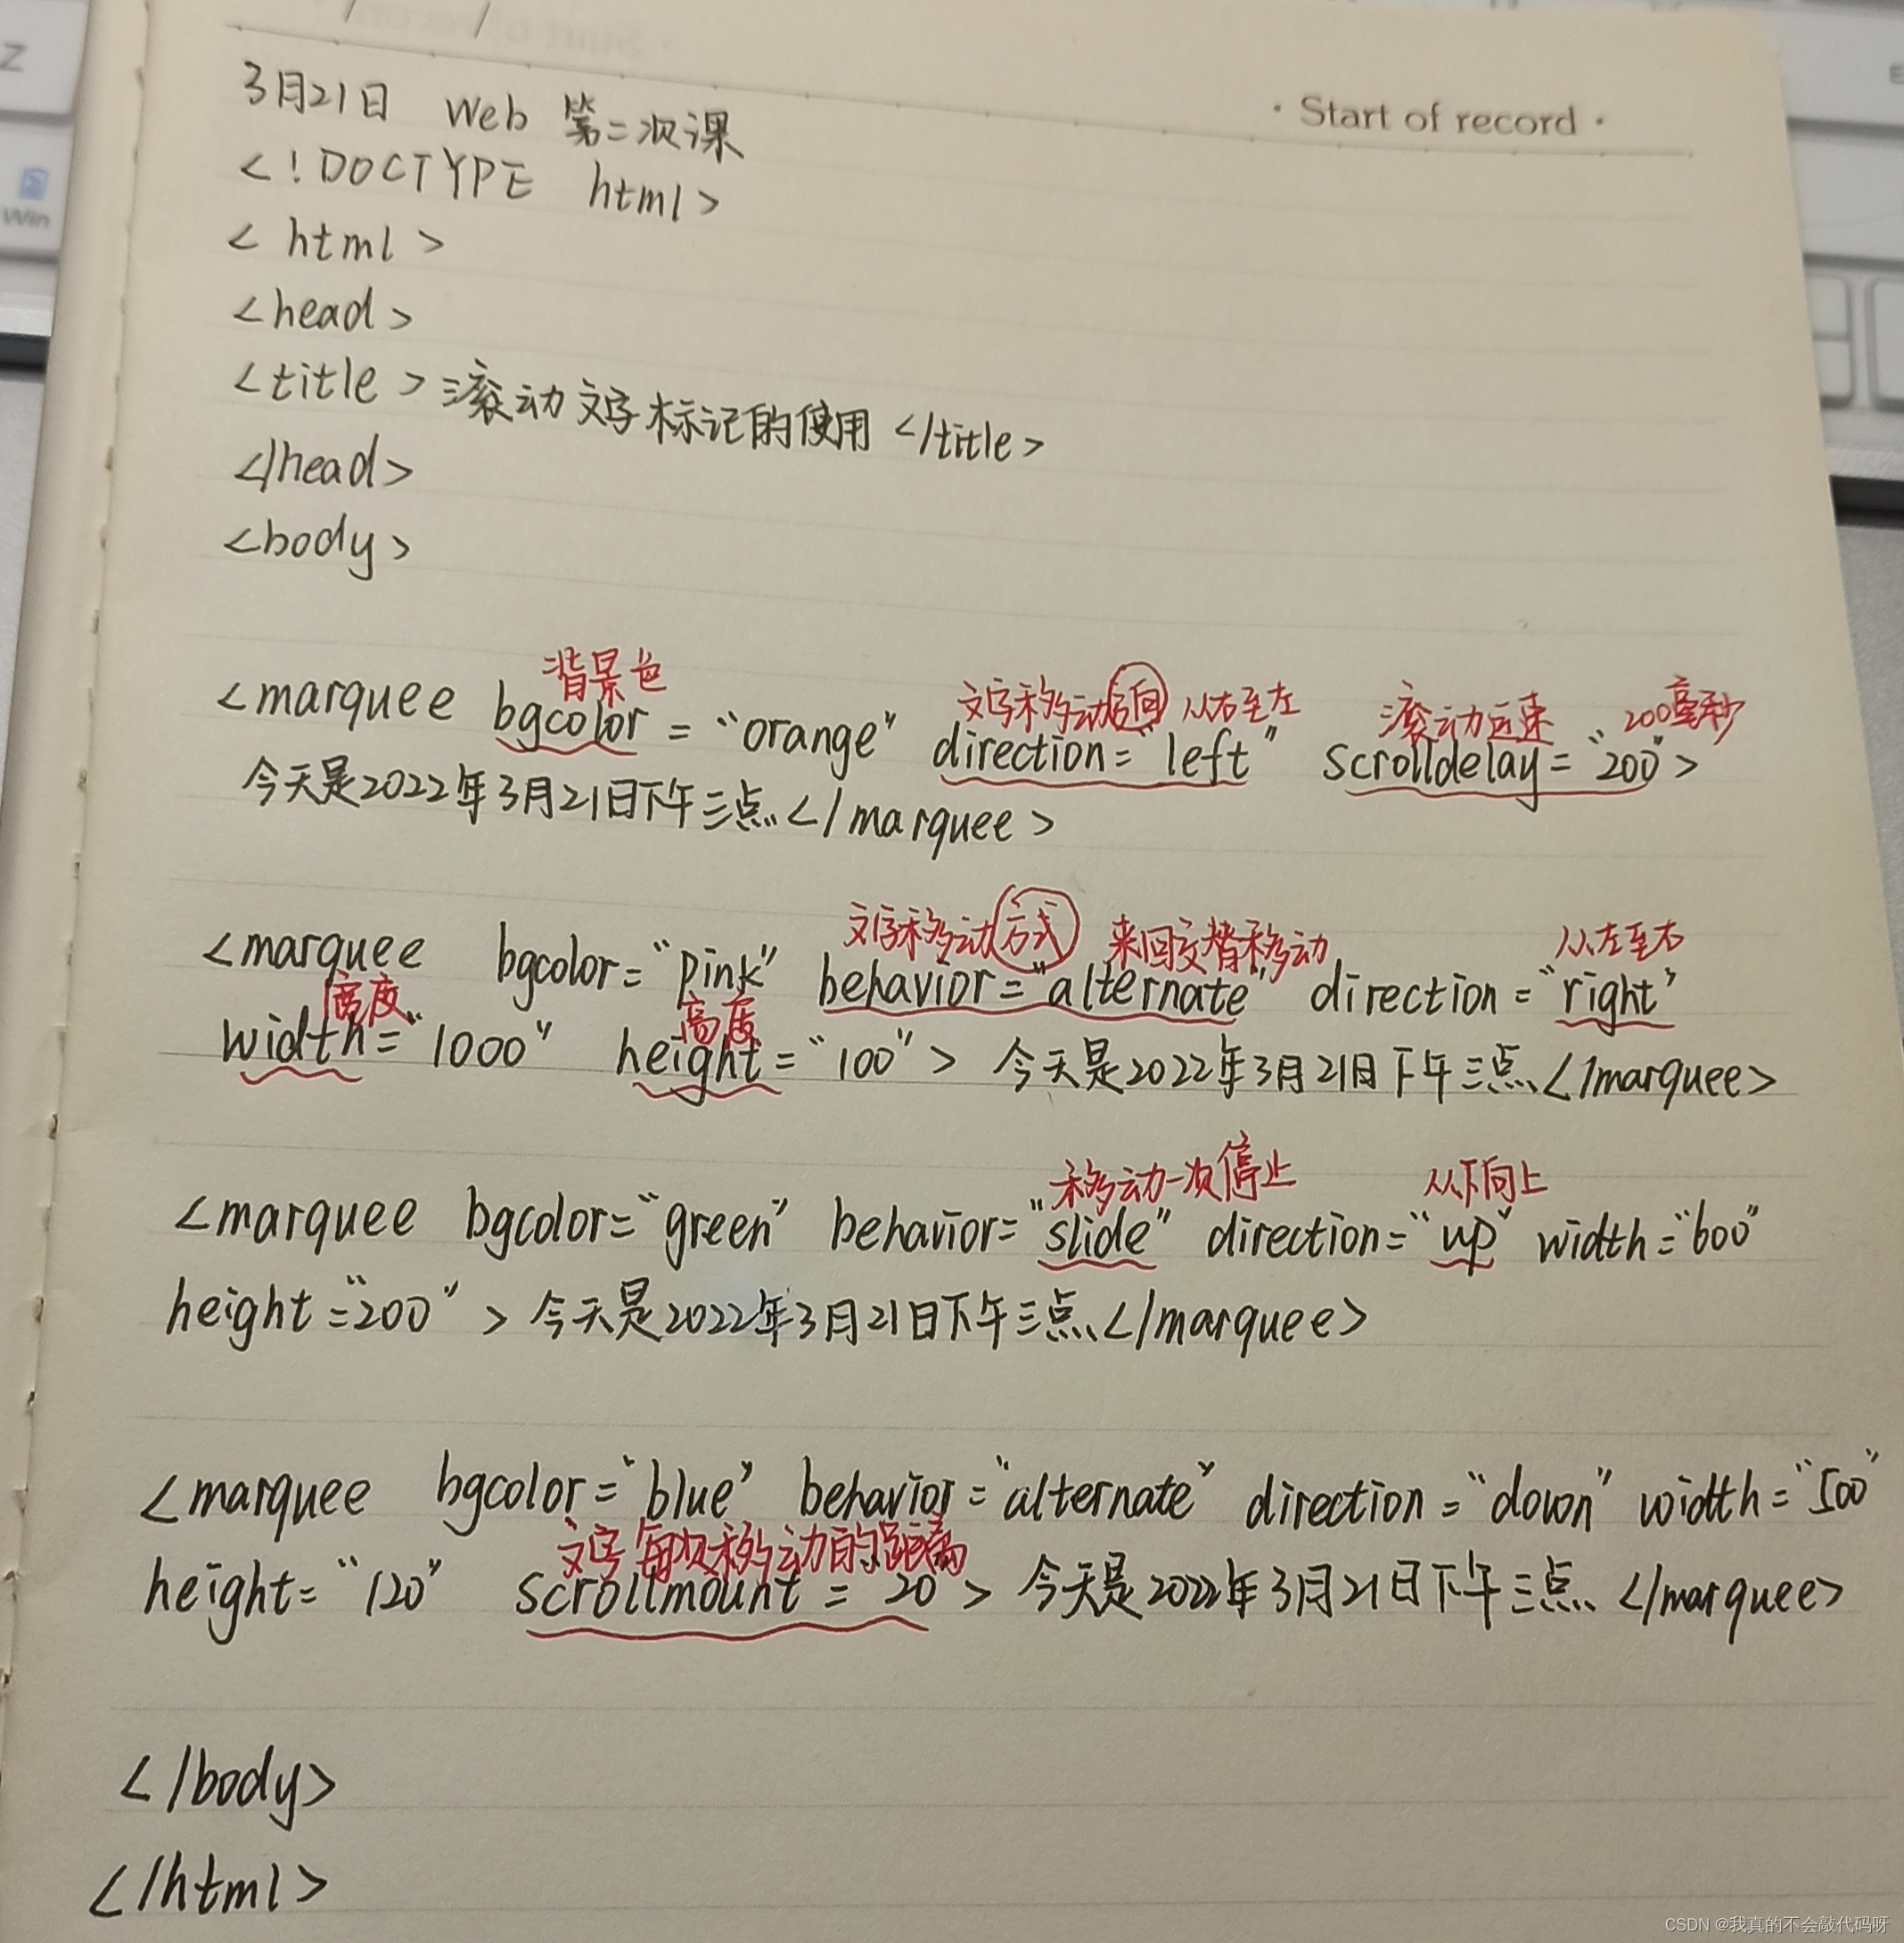 Start of record
3月21日 Web 第二次课
<!DOCTYPE html>
< html >
<head>
<title>滚动文字标记的使用</title>
</head>
<body>
背景色 文字移动方向 从右至左 滚动迟速 200毫秒
<marquee bgcolor = "orange" direction="left" scrolldelay="200">
今天是2022年3月21日下午三点</marquee>
文字移动方式 来回交替移动 从左至右
<marquee bgcolor="pink" behavior="alternate" direction="right"
高度
width="1000" height="100"> 今天是2022年3月21日下午三点</marquee>
移动一次停止 从下向上
<marquee bgcolor="green" behavior="slide" direction="up" width="600"
height="200" > 今天是2022年3月21日下午三点</marquee>
<marquee bgcolor="blue" behavior="alternate" direction="down" width="500"
文字每次移动的距离
height="120" scrollmount = 20 > 今天是2022年3月21日下午三点 </marquee>
</body>
</html>
Z
Win
CSDN @我真的不会敲代码呀